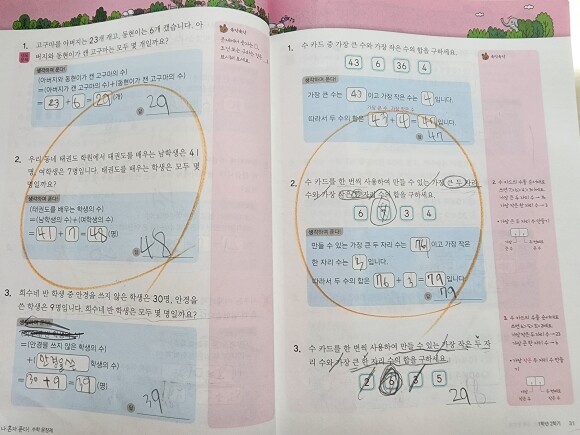 1. 고구마를 아버지는 23개 캐고, 동현이는 6개 캤습니다. 아
버지와 동현이가 캔 고구마는 모두 몇 개일까요?
생각하며 푼다!
(아버지와 동현이가 캔 고구마의 수)
=(아버지가 캔 고구마의 수)+(동현이가 캔 고구마의 수)
= 23 + 6 = 29 (개)
답 29
2. 우리 동네 태권도 학원에서 태권도를 배우는 남학생은 41
명, 여학생은 7명입니다. 태권도를 배우는 학생은 모두 몇
명일까요?
생각하며 푼다!
(태권도를 배우는 학생의 수)
=(남학생의 수)+(여학생의 수)
= 41 + 7 = 48 (명)
답 48
3. 희수네 반 학생 중 안경을 쓰지 않은 학생은 30명, 안경을
쓴 학생은 9명입니다. 희수네 반 학생은 모두 몇 명일까요?
생각하며 푼다!
=(안경을 쓰지 않은 학생의 수)
+( 안경을 쓴 학생의 수)
= 30 + 9 = 39 (명)
답 39
나 혼자 푼다! 수학 문장제
1. 수 카드 중 가장 큰 수와 가장 작은 수의 합을 구하세요.
43 6 36 4
생각하며 푼다!
가장 큰 수는 43 이고 가장 작은 수는 4 입니다.
따라서 두 수의 합은 43 + 4 = 47 입니다.
답 47
2. 수 카드를 한 번씩 사용하여 만들 수 있는 가장 큰 두 자리
수와 가장 작은 한 자리 수의 합을 구하세요.
6 7 3 4
생각하며 푼다!
만들 수 있는 가장 큰 두 자리 수는 76 이고 가장 작은
한 자리 수는 3 입니다.
따라서 두 수의 합은 76 + 3 = 79 입니다.
답 79
3. 수 카드를 한 번씩 사용하여 만들 수 있는 가장 작은 두 자
리 수와 가장 큰 한 자리 수의 합을 구하세요.
2 6 3 5
29
1학년 2학기
21